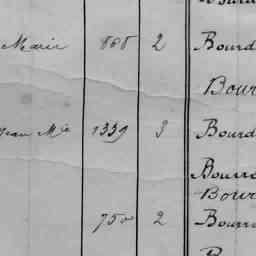 Marie 868 2 Bourd
Bour
Jean Mie 1339 3 Bourd
Bourr
Bour
750 2 Bourr